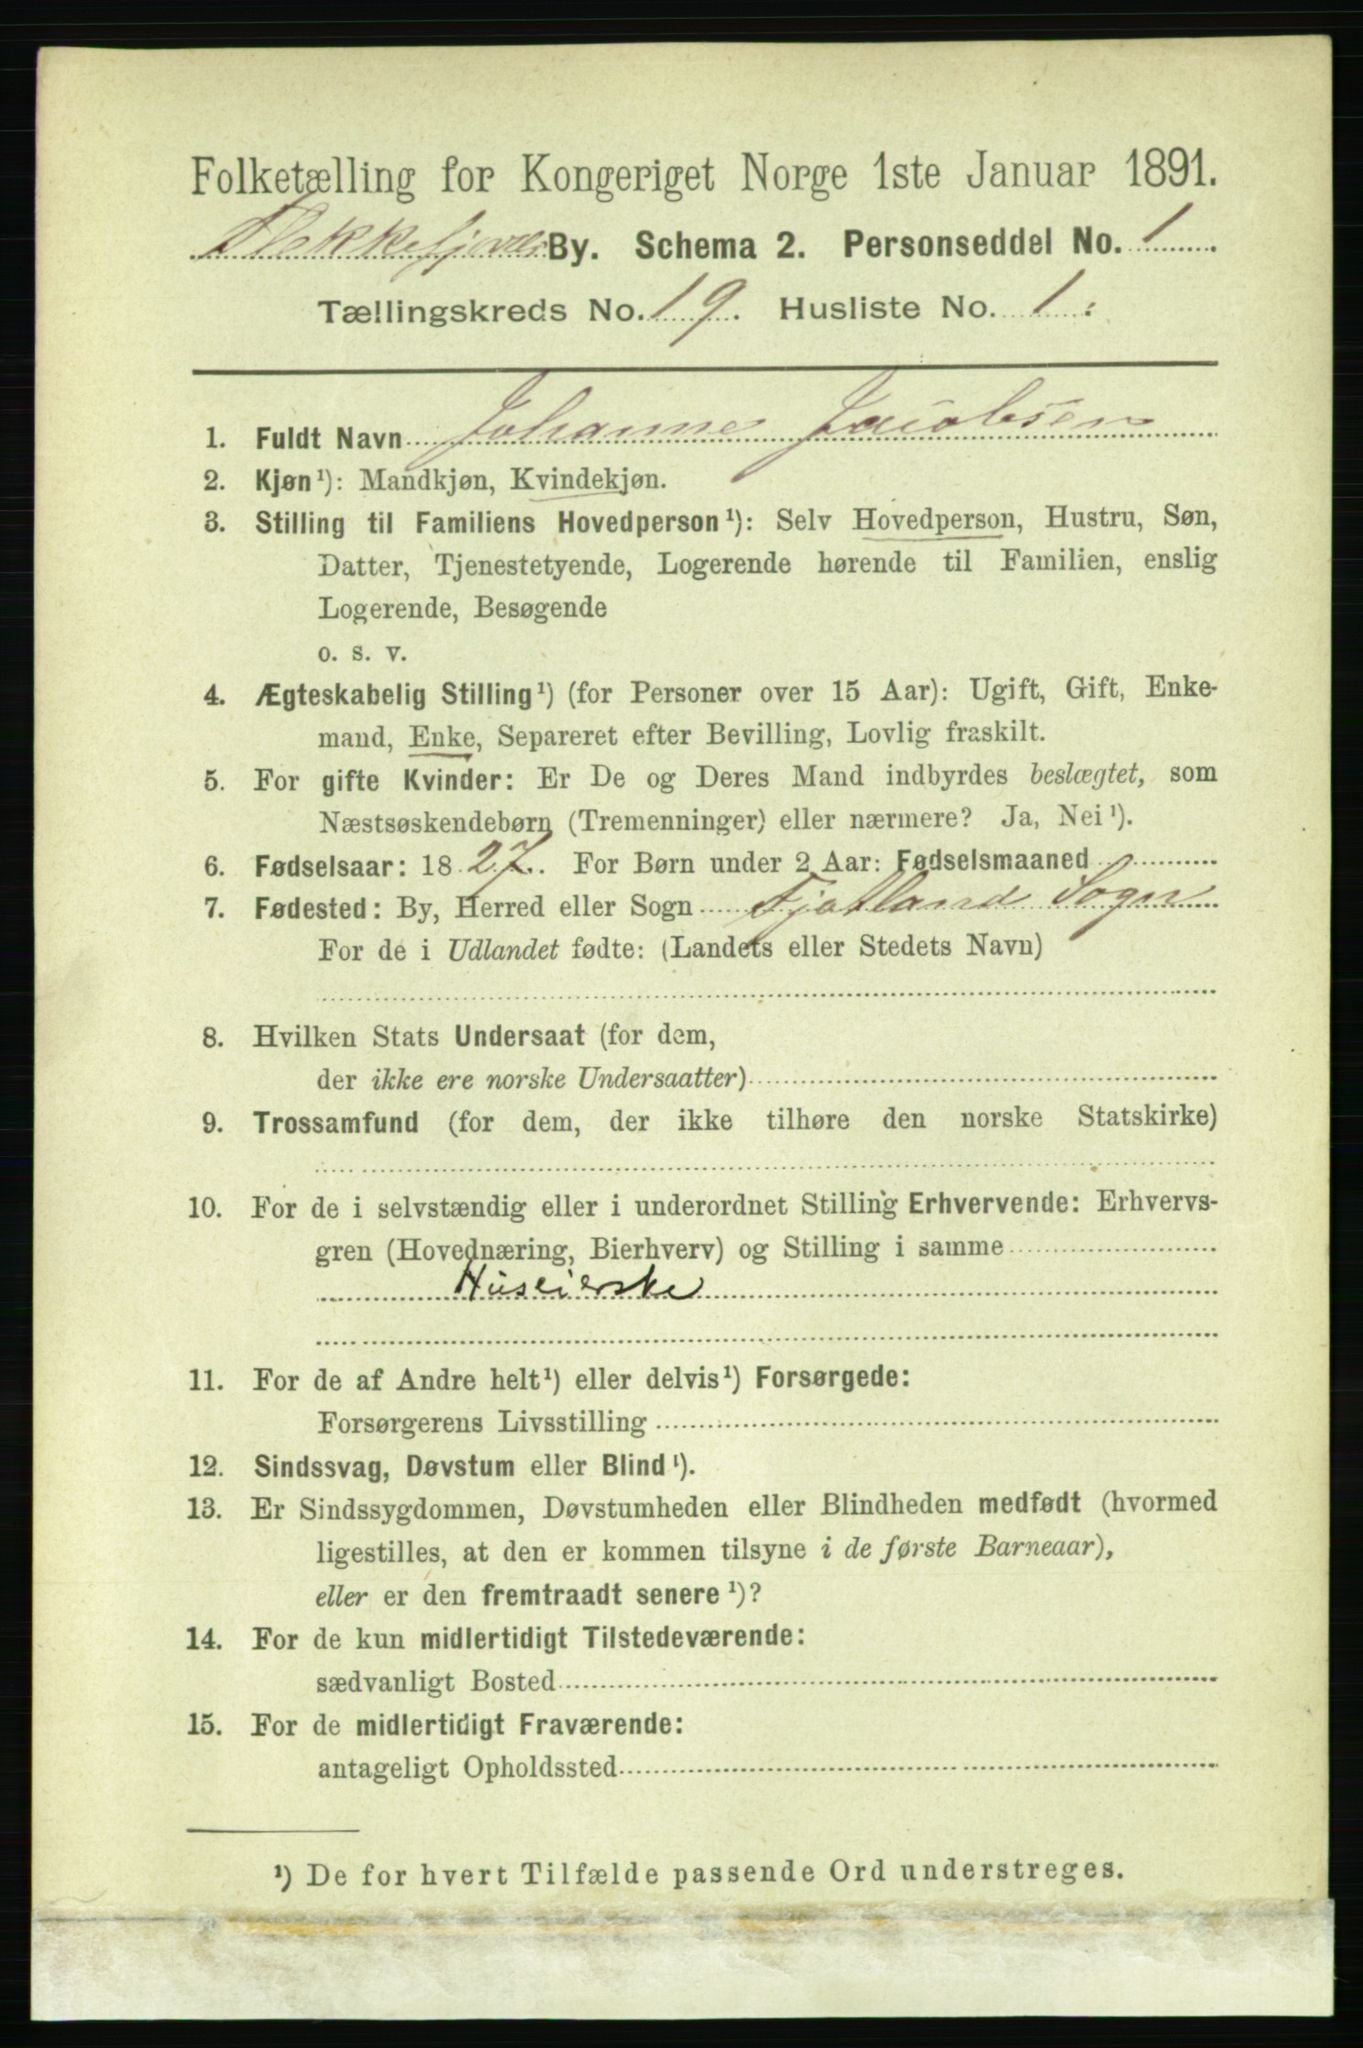 Folketælling for Kongeriget Norge 1ste Januar 1891.
Flekkefjords By. Schema 2. Personseddel No. 1
Tællingskreds No. 19. Husliste No. 1.
1. Fuldt Navn Johanne Jacobsen
2. Kjøn¹): Mandkjøn, Kvindekjøn.
3. Stilling til Familiens Hovedperson¹): Selv Hovedperson, Hustru, Søn,
Datter, Tjenestetyende, Logerende hørende til Familien, enslig
Logerende, Besøgende
o. s. v.
4. Ægteskabelig Stilling¹) (for Personer over 15 Aar): Ugift, Gift, Enke-
mand, Enke, Separeret efter Bevilling, Lovlig fraskilt.
5. For gifte Kvinder: Er De og Deres Mand indbyrdes beslægtet, som
Næstsøskendebørn (Tremenninger) eller nærmere? Ja, Nei¹).
6. Fødselsaar: 1827. For Børn under 2 Aar: Fødselsmaaned
7. Fødested: By, Herred eller Sogn Fjotland Sogn
For de i Udlandet fødte: (Landets eller Stedets Navn)
8. Hvilken Stats Undersaat (for dem,
der ikke ere norske Undersaatter)
9. Trossamfund (for dem, der ikke tilhøre den norske Statskirke)
10. For de i selvstændig eller i underordnet Stilling Erhvervende: Erhvervs-
gren (Hovednæring, Bierhverv) og Stilling i samme
Huseierske
11. For de af Andre helt¹) eller delvis¹) Forsørgede:
Forsørgerens Livsstilling
12. Sindssvag, Døvstum eller Blind¹).
13. Er Sindssygdommen, Døvstumheden eller Blindheden medfødt (hvormed
ligestilles, at den er kommen tilsyne i de første Barneaar),
eller er den fremtraadt senere¹)?
14. For de kun midlertidigt Tilstedeværende:
sædvanligt Bosted
15. For de midlertidigt Fraværende:
antageligt Opholdssted
¹) De for hvert Tilfælde passende Ord understreges.